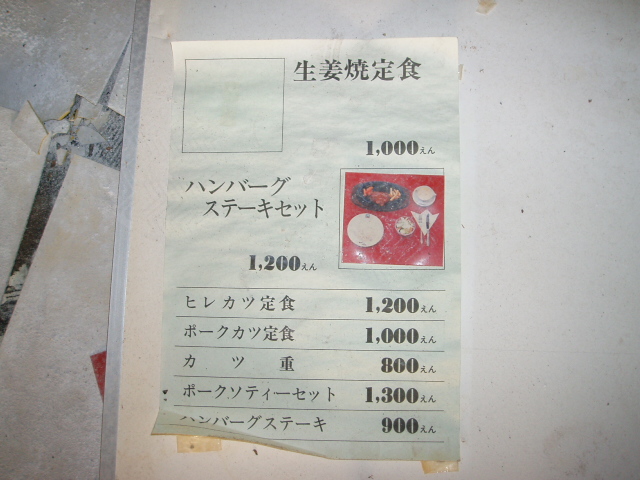 生姜焼定食
1,000えん
ハンバーグ
ステーキセット
1,200えん
ヒレカツ定食 1,200えん
ポークカツ定食 1,000えん
カツ重 800えん
ポークソティーセット 1,300えん
ハンバーグステーキ 900えん